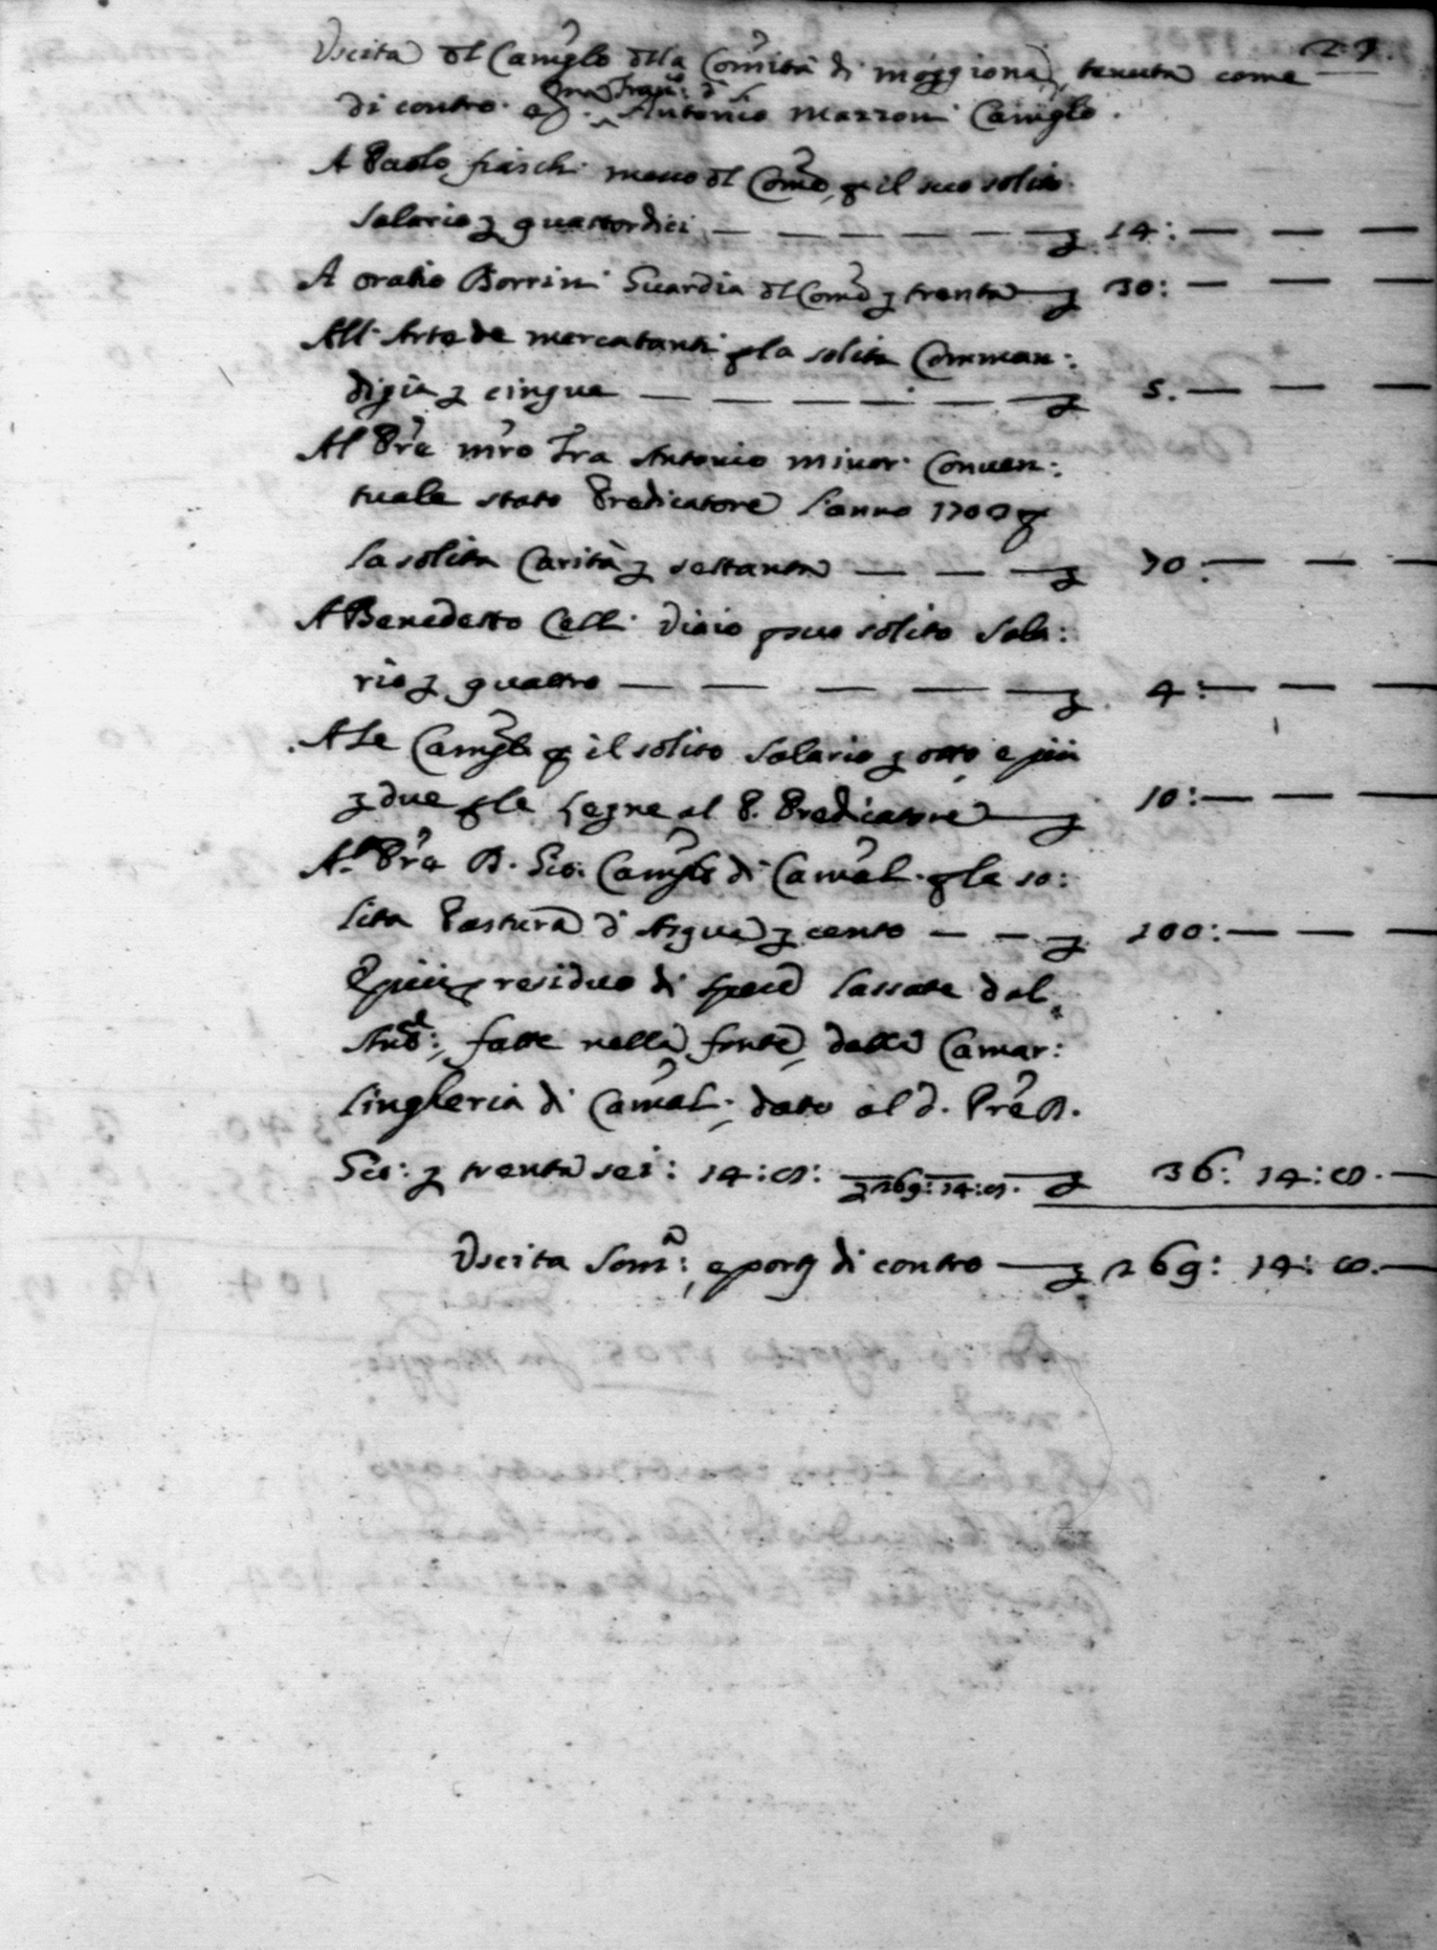 27.
Uscita dl Camglo dlla Comità di moggiona, tenuta come
di contro. Antonio mazzoni Camglo.
A Paolo fiaschi messo dl Comò, p il suo solito
salario £ quattordici — — — — — — £ 14: — — —
A oratio Borrini Guardia dl Comò £ trenta — £ 30: — — —
All'Arte de mercatanti p la solita Comman:
digia £ cinque — — — — — — £ 5. — — —
Al Prê mrô Fra Antonio minor. Conven:
tuale stato Predicatore l'anno 1700 p
la solita Carità £ settanta — — — £ 70: — — —
A Benedetto Celli Viaio p suo solito sala:
rio £ quattro — — — — — £ 4: — — —
A Le Camglo p il solito salario £ otto, e più
£ due p le legne al P. Predicatore — £ 10: — — —
Al Prê D. Gio: Camglo di Camal. p la so:
lita Pastura d'Asqua £ cento — — £ 100: — — —
E più p residuo di spese lassate dal
fatte nella fonte, dalla Camar:
lingheria di Camal:, dato al d. Prê D.
Gio: £ trenta sei: 14: 8: £ 269: 14: 8. £ 36: 14: 8. —
Uscita Somª:, e porti di contro — £ 269: 14: 8. —